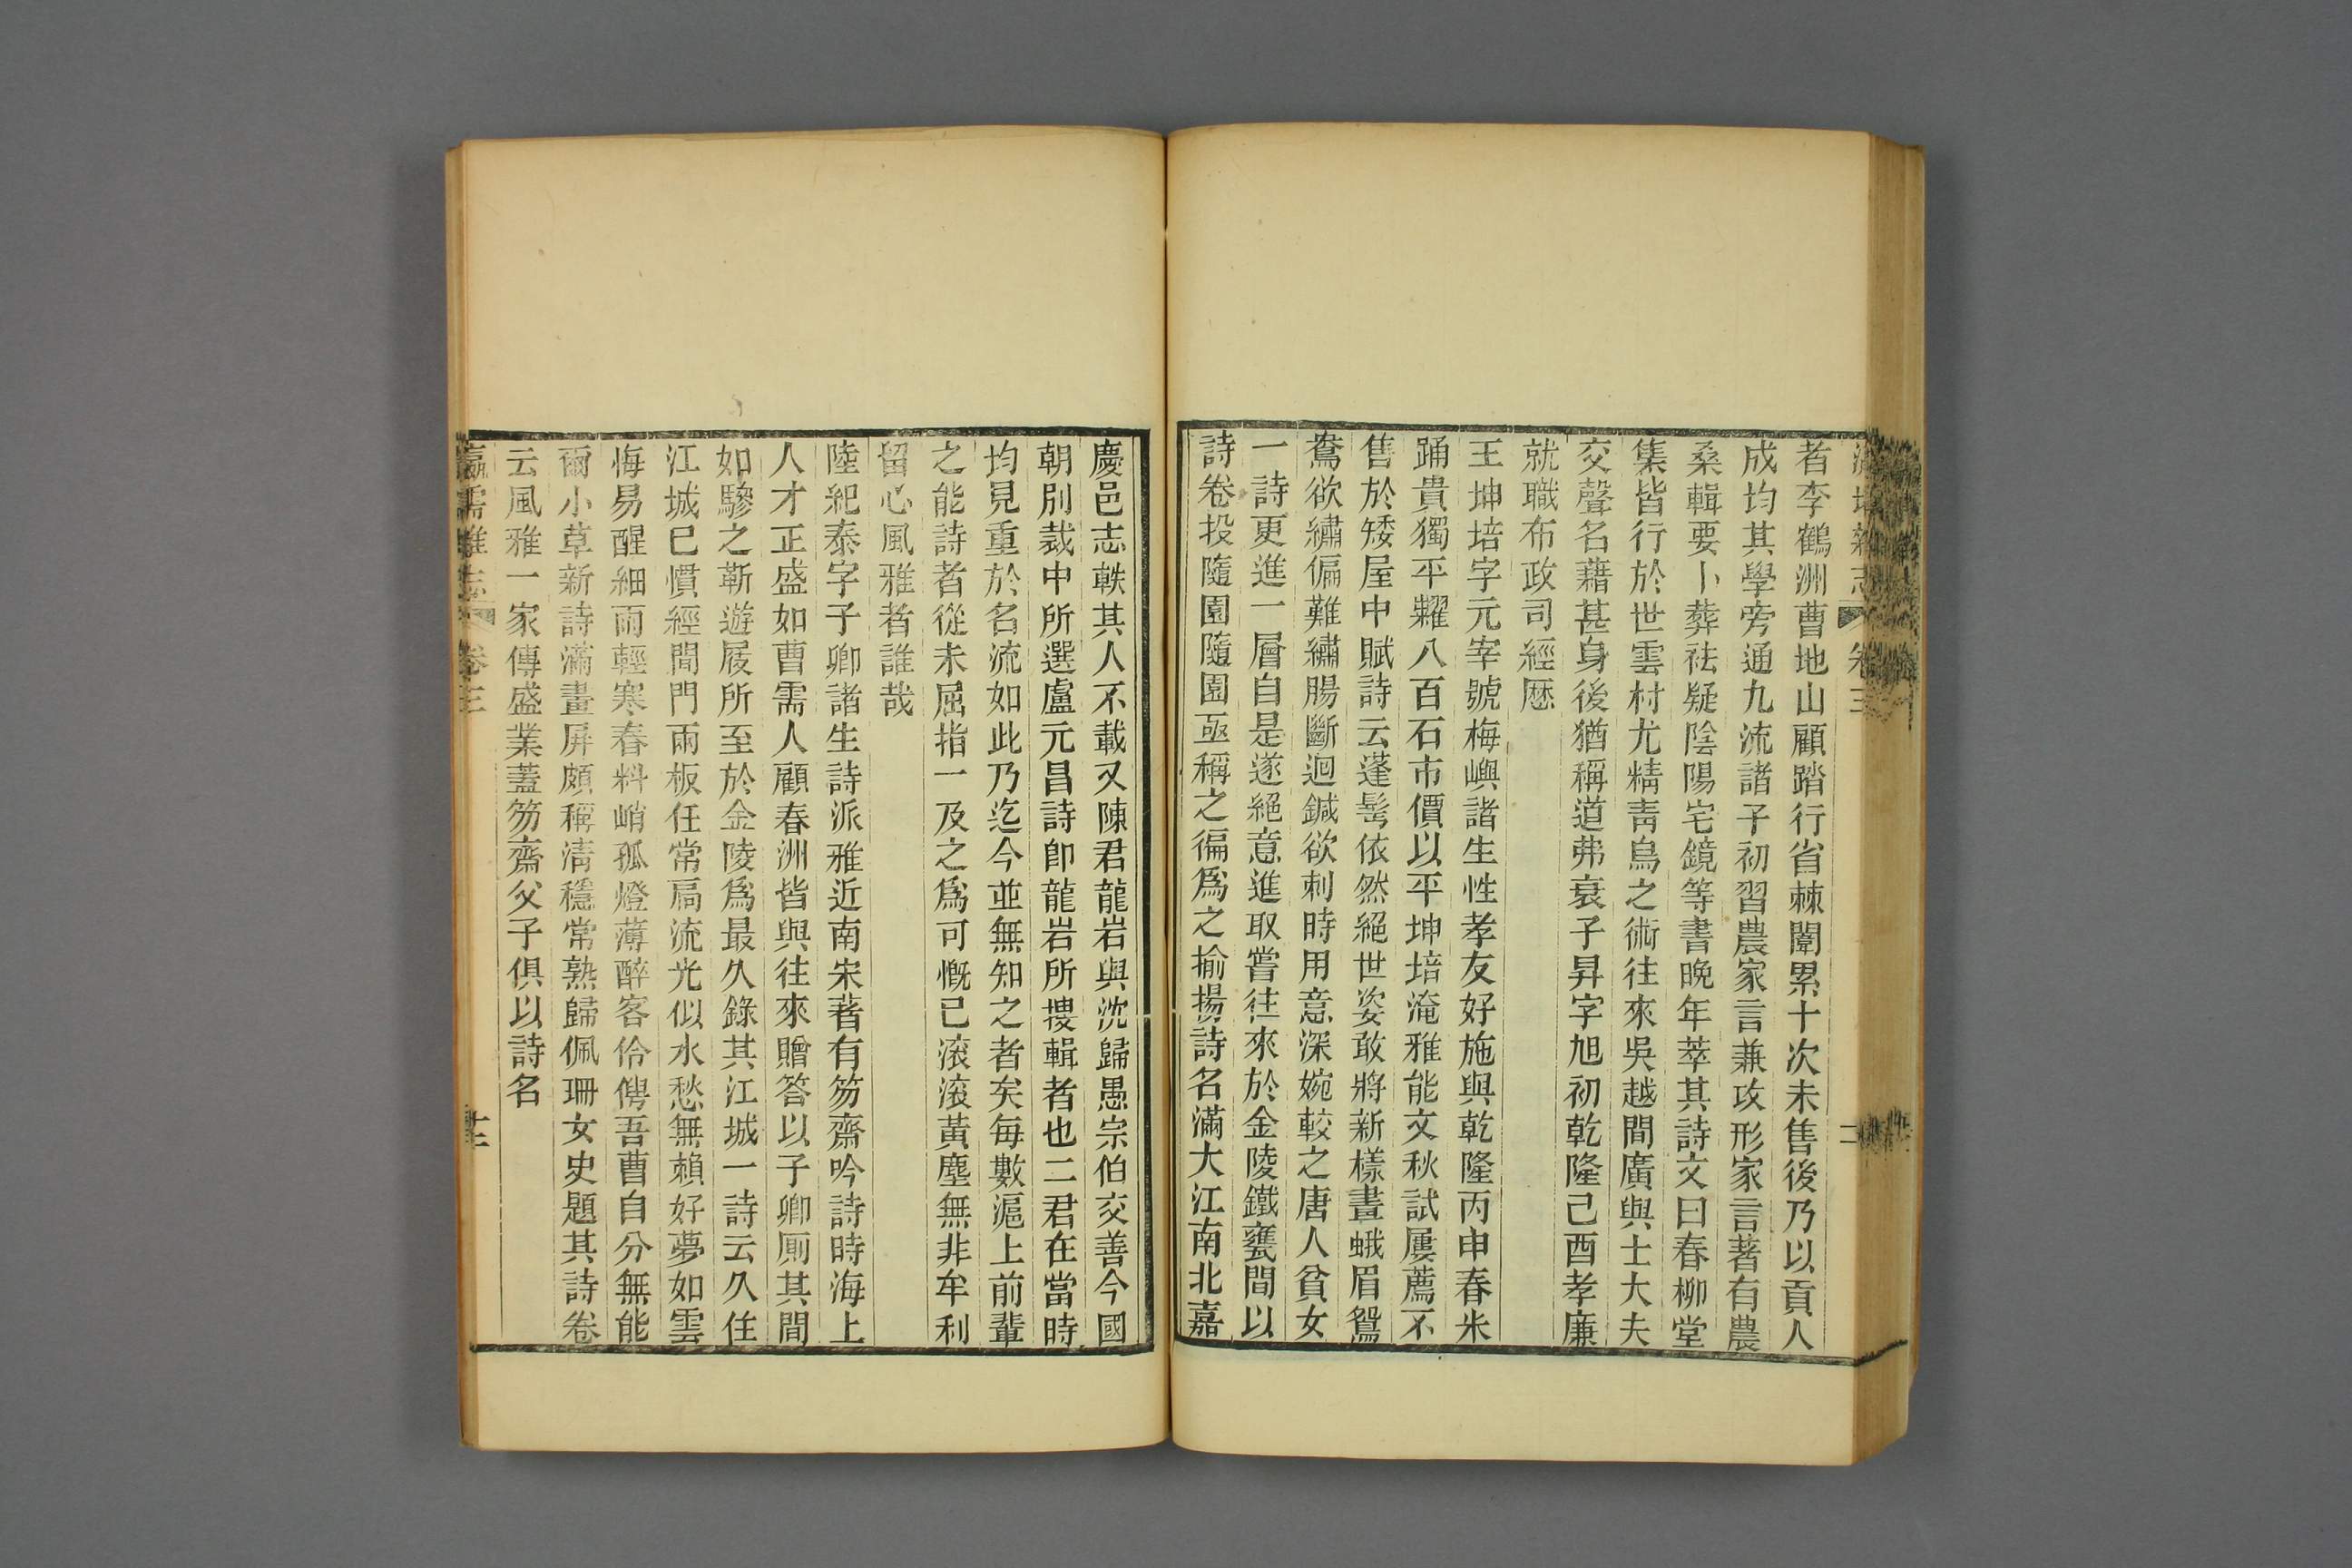 瀛壖雜志 卷三
者李鶴洲曹地山顧踏行省棘闈累十次未售後乃以貢人
成均其學旁通九流諸子初習農家言兼攻形家言著有農
桑輯要卜葬祛疑陰陽宅鏡等書晚年萃其詩文曰春柳堂
集皆行於世雲村尤精靑烏之術往來吳越間廣與士大夫
交聲名藉甚身後猶稱道弗衰子昇字旭初乾隆己酉孝廉
就職布政司經歷
王坤培字元宰號梅嶼諸生性孝友好施與乾隆丙申春米
踊貴獨平糶八百石市價以平坤培淹雅能文秋試屢薦不
售於矮屋中賦詩云蓬髩依然絕世姿敢將新樣畫蛾眉鴛
鴦欲繡偏難繡腸斷迴鍼欲刺時用意深婉較之唐人貧女
一詩更進一層自是遂絕意進取嘗往來於金陵鐵甕間以
詩卷投隨園隨園亟稱之徧爲之揄揚詩名滿大江南北嘉
慶邑志軼其人不載又陳君龍岩與沈歸愚宗伯交善今國
朝別裁中所選盧元昌詩卽龍岩所摟輯者也二君在當時
均見重於名流如此乃迄今並無知之者矣每數滬上前輩
之能詩者從未屈指一及之爲可慨已滚滚黃塵無非牟利
留心風雅者誰哉
陸紀泰字子卿諸生詩派雅近南宋著有笏齋吟詩時海上
人才正盛如曹需人顧春洲皆與往來贈答以子卿厠其間
如驂之靳遊履所至於金陵爲最久錄其江城一詩云久住
江城已慣經閒門雨板任常扃流光似水愁無賴好夢如雲
悔易醒細雨輕寒春料峭孤燈薄醉客伶俜吾曹自分無能
爾小草新詩滿畫屏頗稱淸穩常熟歸佩珊女史題其詩卷
云風雅一家傳盛業蓋笏齋父子俱以詩名
瀛壖雜志 卷三 十二